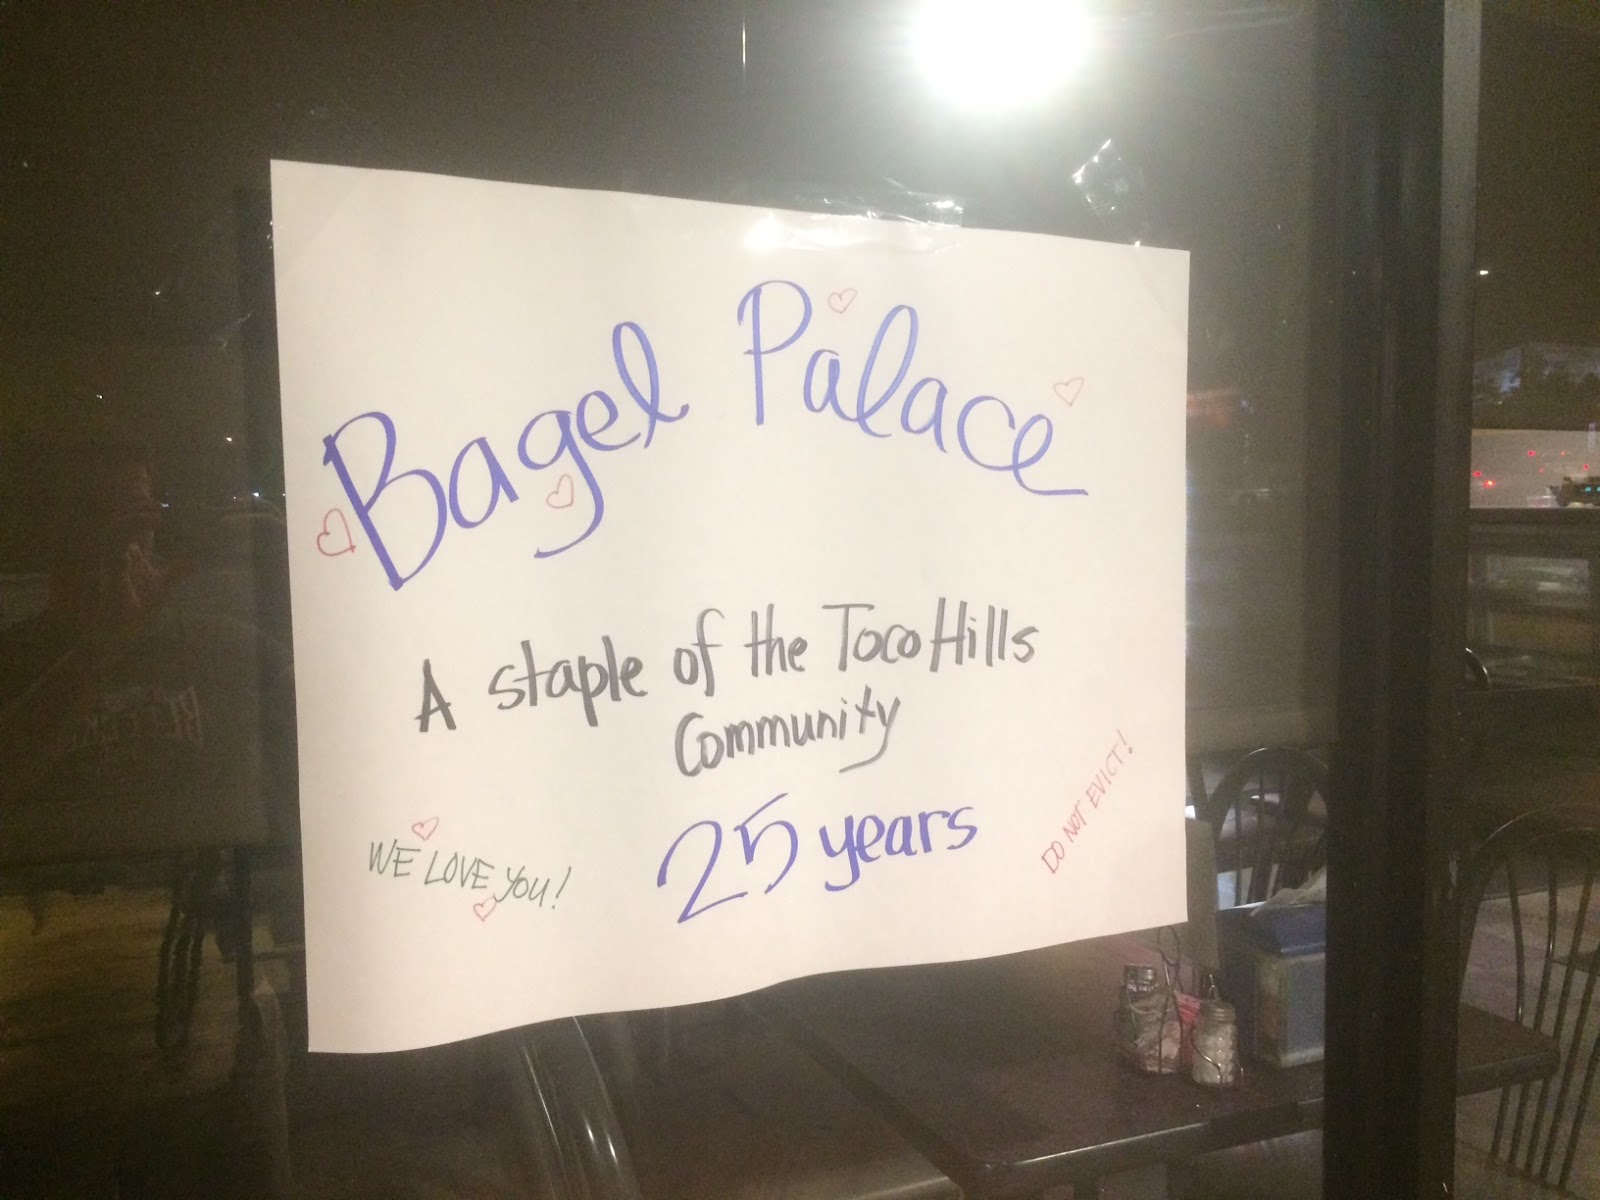 Bagel Palace
A staple of the Toco Hills
Community
25 years
WE LOVE YOU!
DO NOT EVICT!